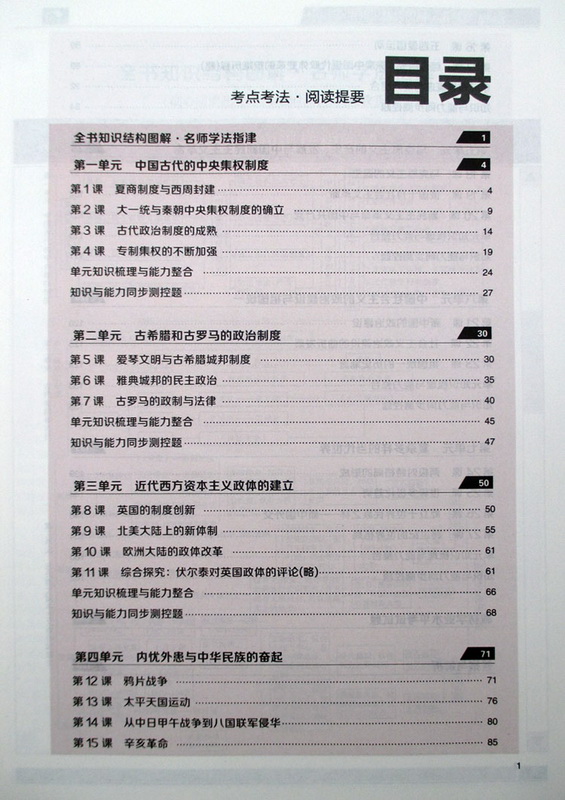 目录
考点考法·阅读提要
全书知识结构图解·名师学法指津 1
第一单元 中国古代的中央集权制度 4
第1课 夏商制度与西周封建 4
第2课 大一统与秦朝中央集权制度的确立 9
第3课 古代政治制度的成熟 14
第4课 专制集权的不断加强 19
单元知识梳理与能力整合 24
知识与能力同步测控题 27
第二单元 古希腊和古罗马的政治制度 30
第5课 爱琴文明与古希腊城邦制度 30
第6课 雅典城邦的民主政治 35
第7课 古罗马的政制与法律 40
单元知识梳理与能力整合 45
知识与能力同步测控题 47
第三单元 近代西方资本主义政体的建立 50
第8课 英国的制度创新 50
第9课 北美大陆上的新体制 55
第10课 欧洲大陆的政体改革 61
第11课 综合探究:伏尔泰对英国政体的评论(略) 61
单元知识梳理与能力整合 66
知识与能力同步测控题 68
第四单元 内忧外患与中华民族的奋起 71
第12课 鸦片战争 71
第13课 太平天国运动 76
第14课 从中日甲午战争到八国联军侵华 80
第15课 辛亥革命 85
1